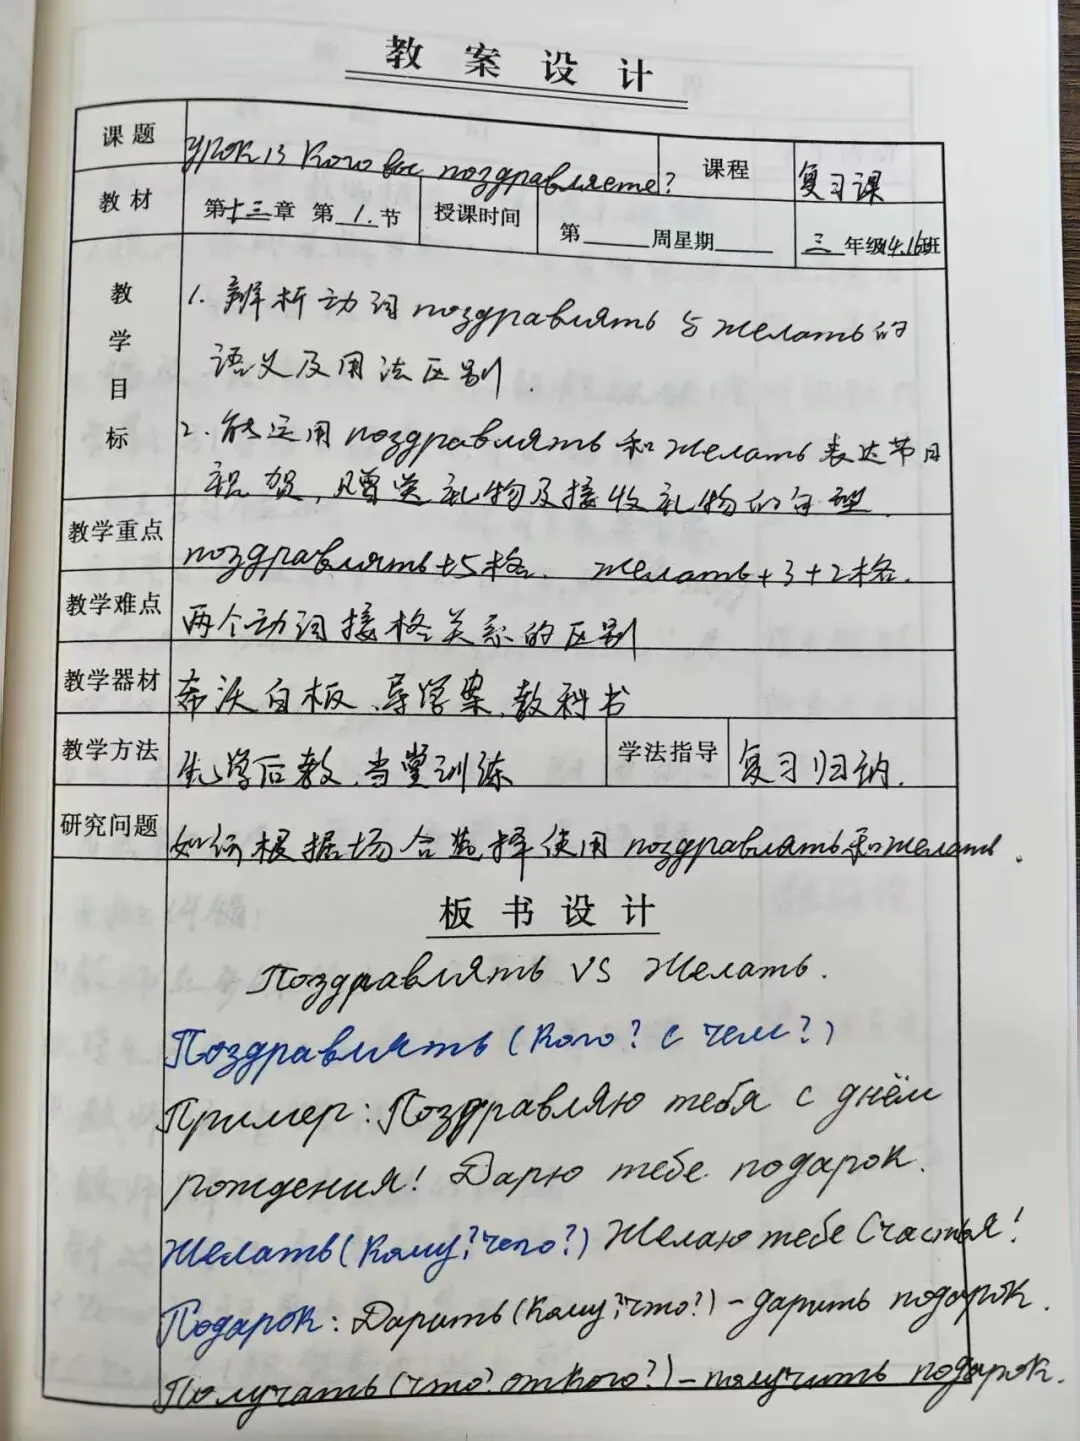 教案设计
课题 Урок 13 Кого вы поздравляете? 课程 复习课
教材 第十三章 第1.节 授课时间 第____周星期____ 三年级14.16班
教学目标
1. 辨析动词 поздравлять 与 желать 的
语义及用法区别.
2. 能运用 поздравлять 和 желать 表达节日
祝贺, 赠送礼物及接收礼物的句型.
教学重点 поздравлять+5格. желать+3+2格.
教学难点 两个动词接格关系的区别
教学器材 希沃白板、导学案、教科书
教学方法 先学后教、当堂训练 学法指导 复习归纳.
研究问题 如何根据场合选择使用 поздравлять 和 желать.
板书设计
Поздравлять VS Желать.
Поздравлять (кого? с чем?)
Пример: Поздравляю тебя с днём
рождения! Дарю тебе подарок.
Желать (кому? чего?) Желаю тебе счастья!
Подарок: Дарить (кому? что?) – дарить подарок.
Получать (что? от кого?) – получить подарок.